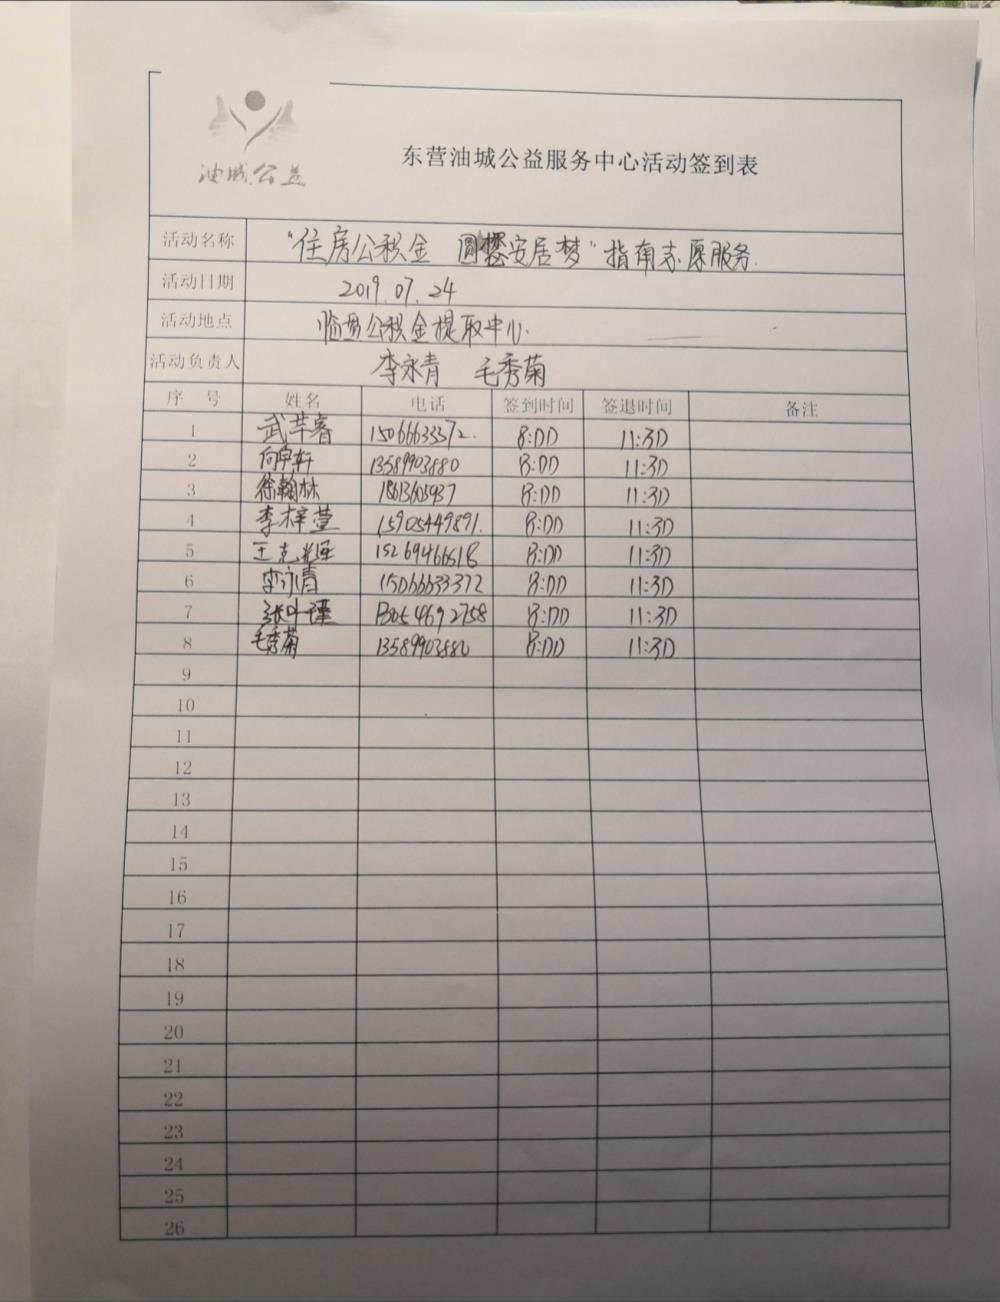 油城公益
东营油城公益服务中心活动签到表
活动名称 "住房公积金 圆 安居梦"指南志愿服务.
活动日期 2019.07.24
活动地点 临盘公积金提取中心.
活动负责人 李永青 毛秀菊
序号 姓名 电话 签到时间 签退时间 备注
1 武芊睿 15066633372. 8:00 11:30
2 向宇轩 13589903880 8:00 11:30
3 徐翰林 18613605937 8:00 11:30
4 李梓萱 15905449891. 8:00 11:30
5 王克 15269466518 8:00 11:30
6 李永青 15066633372 8:00 11:30
7 张叶瑾 13054692758 8:00 11:30
8 毛秀菊 13589903880 8:00 11:30
9
10
11
12
13
14
15
16
17
18
19
20
21
22
23
24
25
26